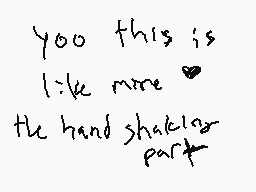 yoo this is
like mine ♥
the hand shaking
part